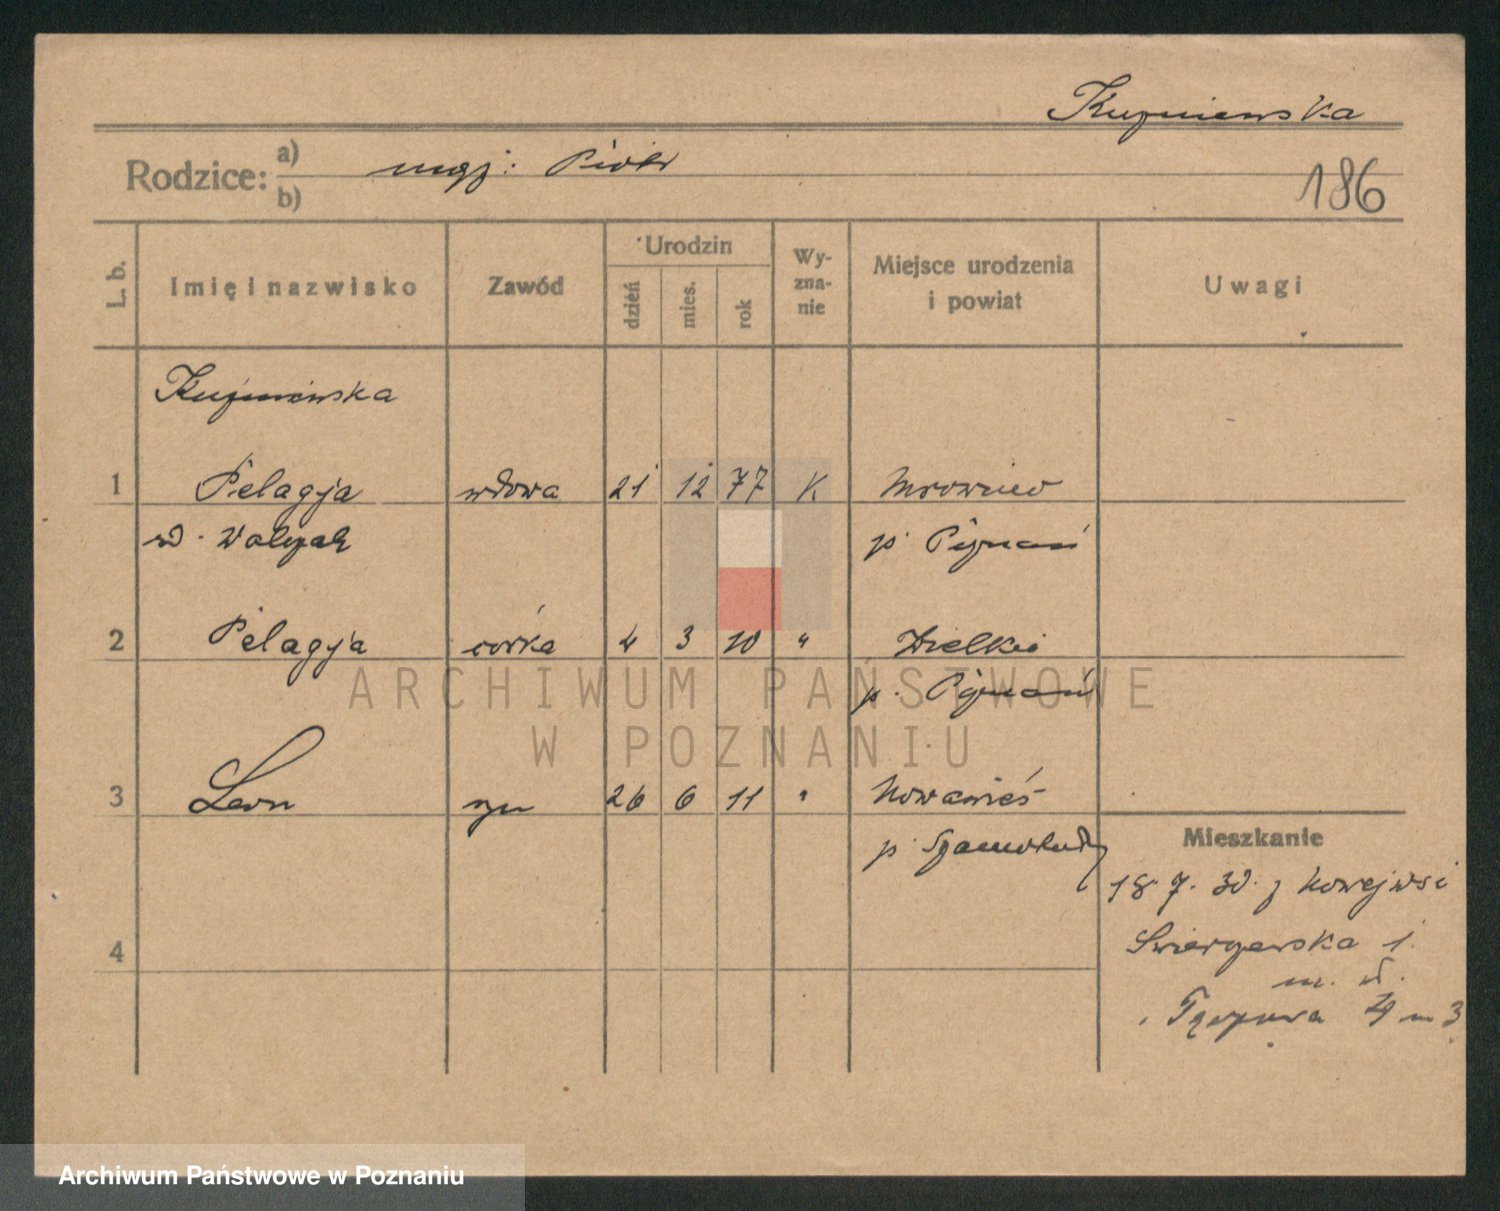 Kuźniewska
Rodzice: a) mąż: Piotr
b)
186
L. b.
Imię i nazwisko
Zawód
Urodzin
dzień
mies.
rok
Wy-
zna-
nie
Miejsce urodzenia
i powiat
Uwagi
Kuźniewska
1 Pelagja wdowa 21 12 77 K Mrowino
p. Poznań
2 Pelagja córka 4 3 10 " Wielkie
p. Poznań
ARCHIWUM PAŃSTWOWE
W POZNANIU
3 Leon syn 26 6 11 " Nowawieś
p. Szamotuły
Mieszkanie
18. 7. 30. z Nowejwsi
4
m.
m 3
Archiwum Państwowe w Poznaniu